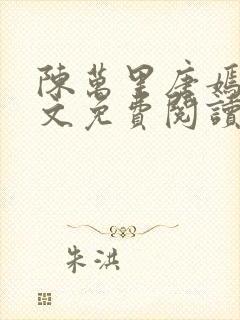 陳萬里唐嫣
文免費閱讀
朱洪